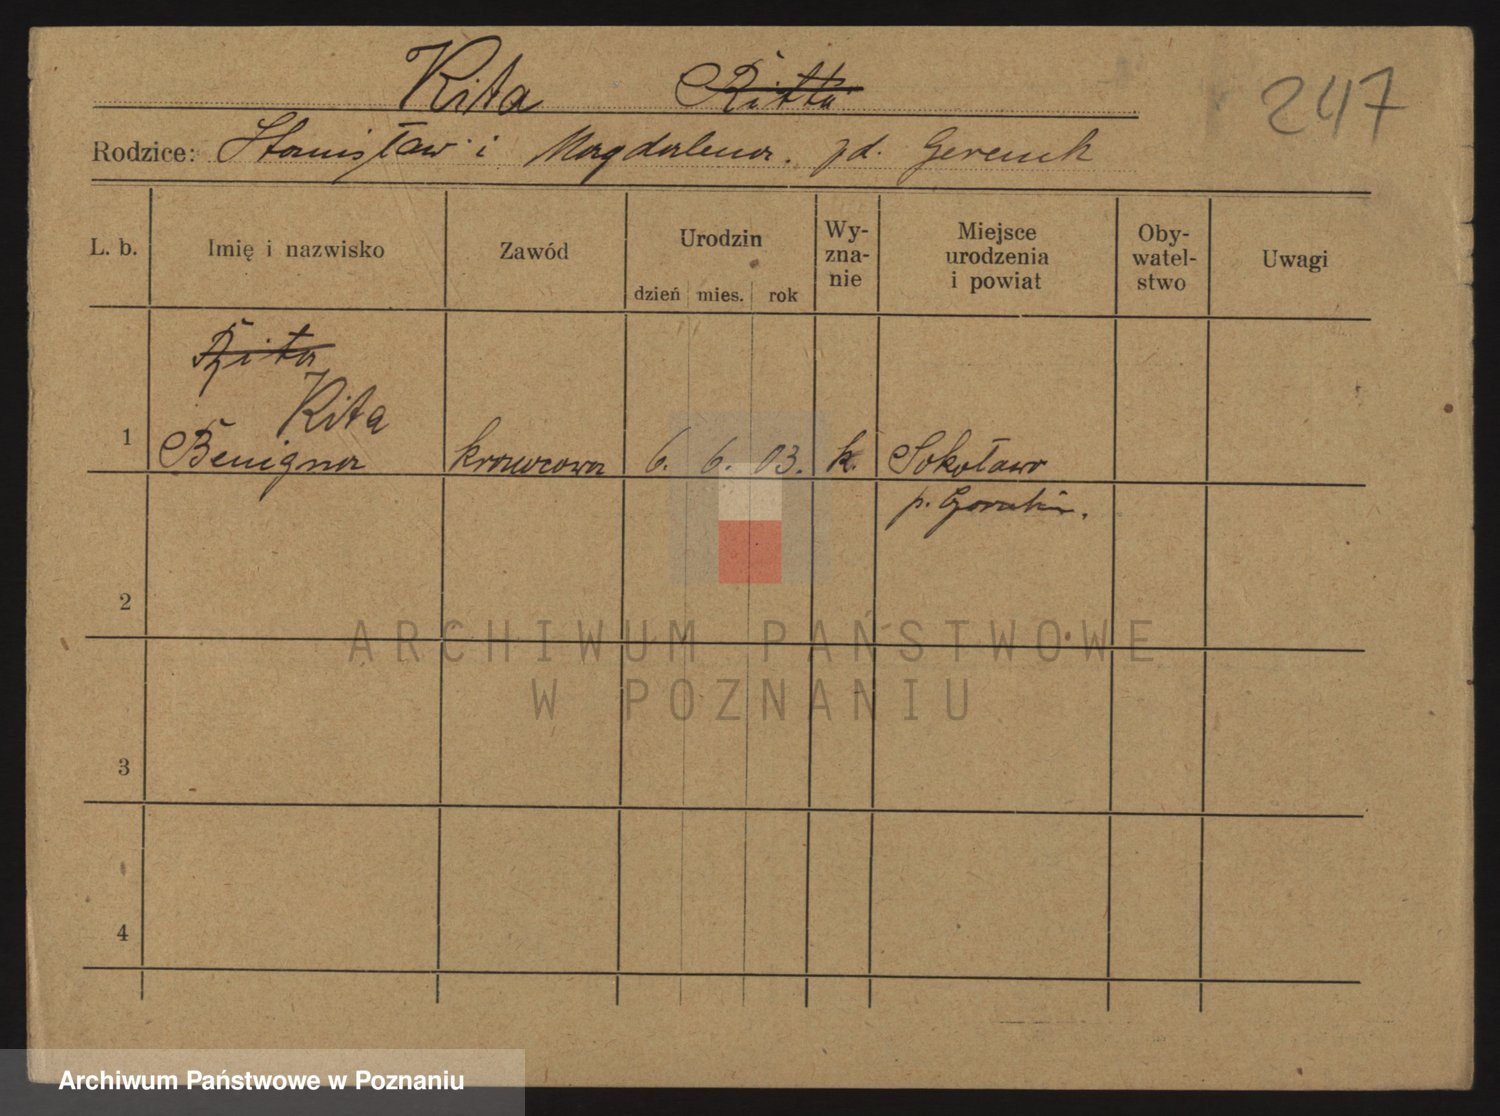 Kita Ritta 247
Rodzice: Stanisław i Magdalena zd. Gereuk
L. b. Imię i nazwisko Zawód Urodzin Wy-zna-nie Miejsce urodzenia i powiat Oby-watel-stwo Uwagi
dzień mies. rok
Rita
Kita
1 Benigna krawcowa 6. 6. 03. k. Sokołowo
p.
2
ARCHIWUM PAŃSTWOWE
W POZNANIU
3
4
Archiwum Państwowe w Poznaniu